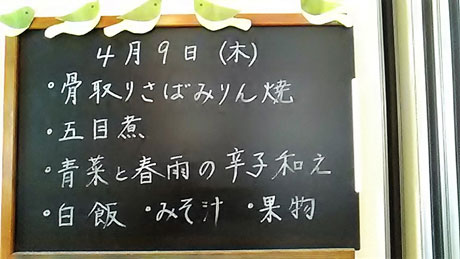 4月9日(木)
・骨取りさばみりん焼
・五目煮
・青菜と春雨の辛子和え
・白飯 ・みそ汁 ・果物